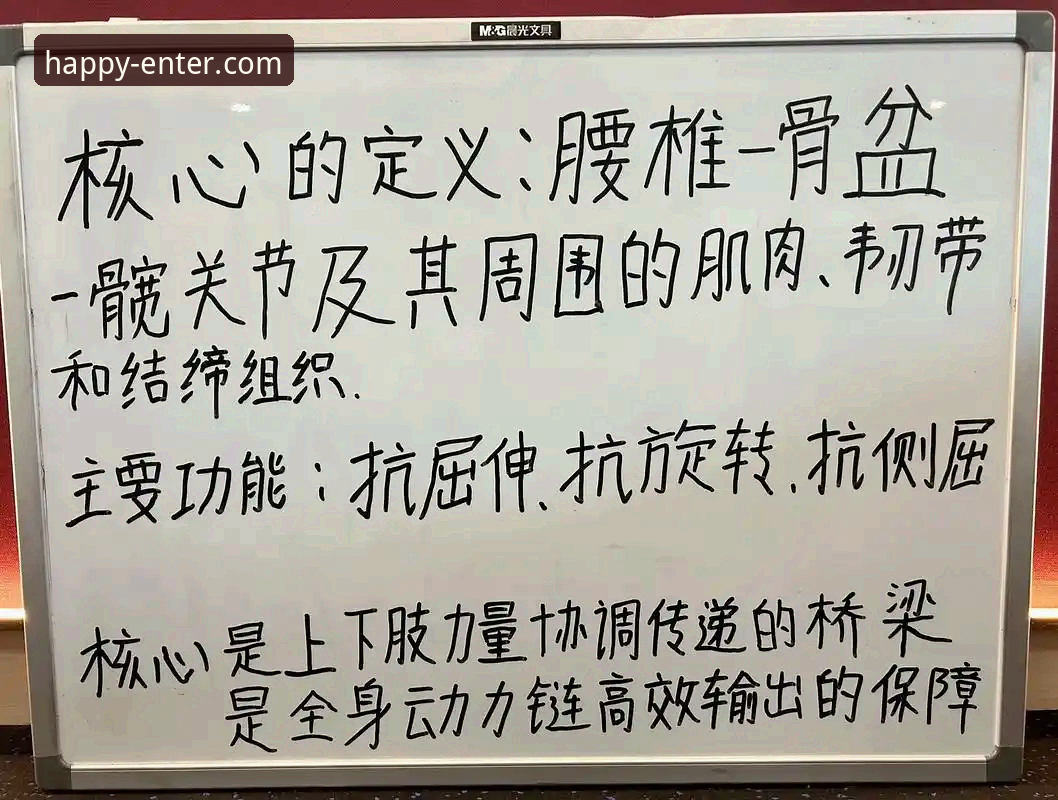 M&G晨光文具
happy-enter.com
核心的定义：腰椎-骨盆
-髋关节及其周围的肌肉、韧带
和结缔组织.
主要功能：抗屈伸、抗旋转、抗侧屈
核心是上下肢力量协调传递的桥梁
是全身动力链高效输出的保障